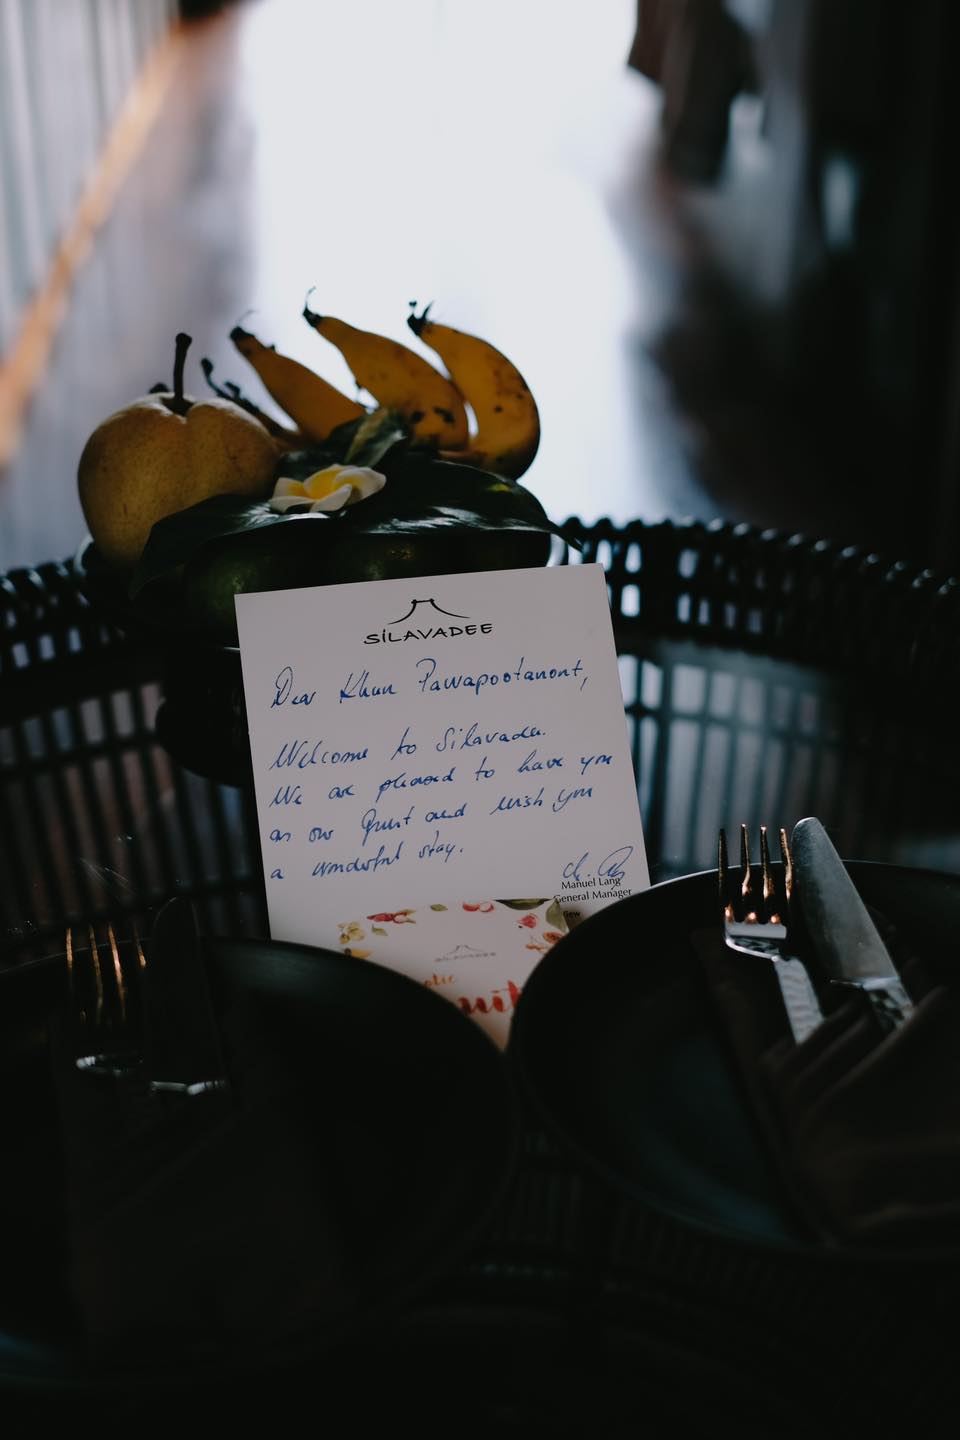 SILAVADEE
Dear Khun Pawapootanont,
Welcome to Silavadee.
We are pleased to have you
as our Guest and wish you
a wonderful stay.
Manuel Lang
General Manager
SILAVADEE